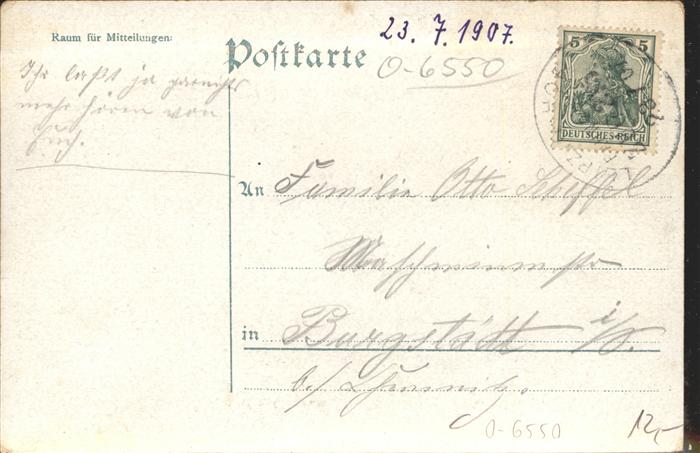 Raum für Mitteilungen:
Ihr laßt ja garnichts
mehr hören von
Euch.
Postkarte
23. 7. 1907.
0-6550
5 5
DEUTSCHES REICH
LEIPZ
An Familie Otto Scheffel
in Burgstädt i/S.
b/ Chemnitz.
0-6550
12,-